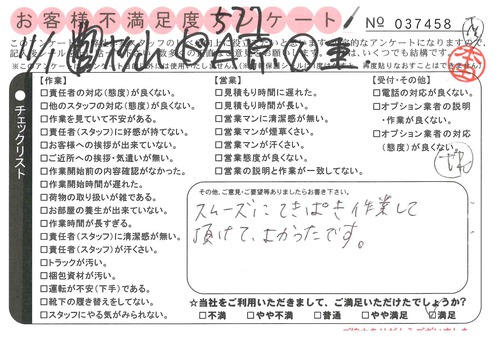 お客様不満足度アンケート
577
No 037458
チェックリスト
【作業】
□責任者の対応(態度)が良くない。
□他のスタッフの対応(態度)が良くない。
□作業を見ていて不安がある。
□責任者(スタッフ)に好感が持てない。
□お客様への挨拶が出来ていない。
□ご近所への挨拶・気遣いが無い。
□作業開始前の内容確認がなかった。
□作業開始時間が遅れた。
□荷物の取り扱いが雑である。
□お部屋の養生が出来ていない。
□作業時間が長すぎる。
□責任者(スタッフ)に清潔感が無い。
□責任者(スタッフ)が汗くさい。
□トラックが汚い。
□梱包資材が汚い。
□運転が不安(下手)である。
□靴下の履き替えをしてない。
□スタッフにやる気がみられない。
【営業】
□見積もり時間に遅れた。
□見積もり時間が長い。
□営業マンに清潔感が無い。
□営業マンが煙草くさい。
□営業マンが汗くさい。
□営業態度が良くない。
□営業の説明と作業が一致してない。
【受付・その他】
□電話の対応が良くない。
□オプション業者の説明
・作業が良くない。
□オプション業者の対応
(態度)が良くない。
その他、ご意見・ご要望等ありましたらお書き下さい。
スムーズにてきぱき作業して
頂けて、よかったです。
☆当社をご利用いただきまして、ご満足いただけたでしょうか?
□不満 □やや不満 □普通 □やや満足 ☑満足